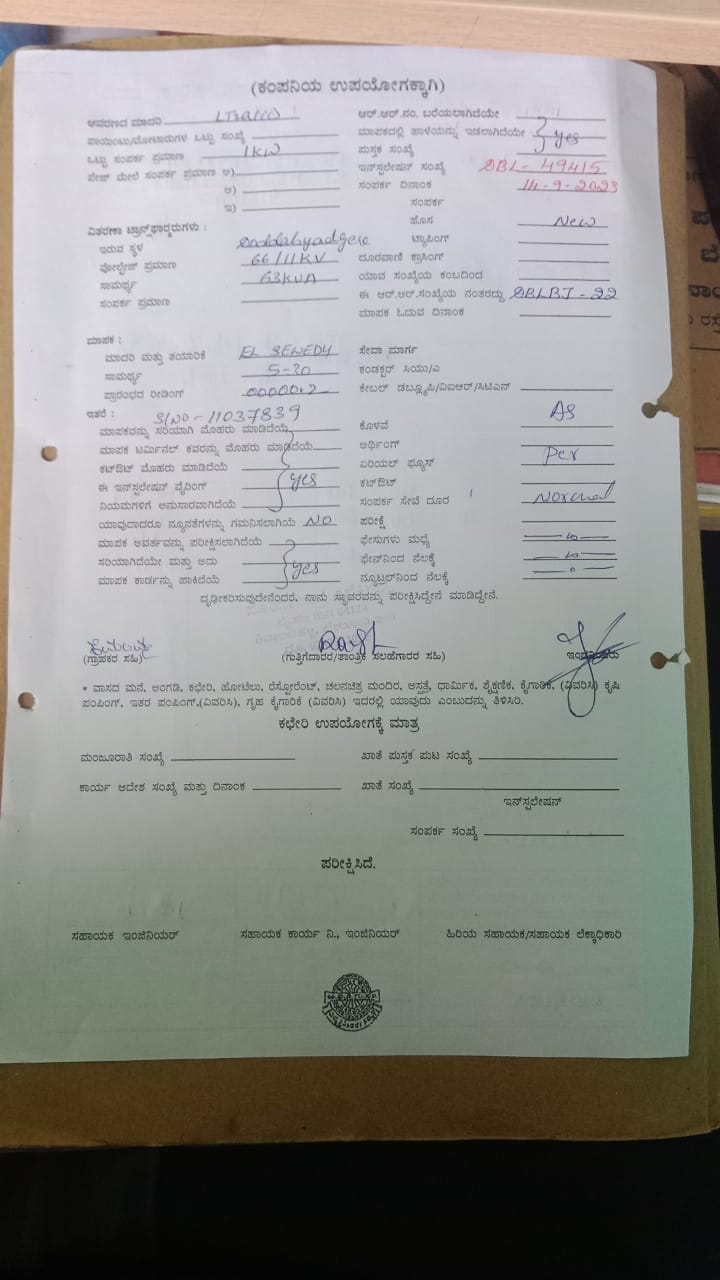 (ಕಂಪನಿಯ ಉಪಯೋಗಕ್ಕಾಗಿ)
ಆವರಣದ ಮಾದರಿ
ಪಾಯಿಂಟು/ಮೋಟಾರುಗಳ ಒಟ್ಟು ಸಂಖ್ಯೆ
ಒಟ್ಟು ಸಂಪರ್ಕ ಪ್ರಮಾಣ 1KW
ಪೇಜ್ ಮೇಲೆ ಸಂಪರ್ಕ ಪ್ರಮಾಣ ಅ)
ಆ)
ಇ)
ವಿತರಣಾ ಟ್ರಾನ್ಸ್‌ಫಾರ್ಮರುಗಳು :
ಇರುವ ಸ್ಥಳ
ವೋಲ್ಟೇಜ್ ಪ್ರಮಾಣ 66/11KV
ಸಾಮರ್ಥ್ಯ 63KVA
ಸಂಪರ್ಕ ಪ್ರಮಾಣ
ಆರ್.ಆರ್.ನಂ. ಬರೆಯಲಾಗಿದೆಯೇ
ಮಾಪಕದಲ್ಲಿ ಹಾಳೆಯನ್ನು ಇಡಲಾಗಿದೆಯೇ yes
ಪುಸ್ತಕ ಸಂಖ್ಯೆ
ಇನ್‌ಸ್ಟಲೇಷನ್ ಸಂಖ್ಯೆ DBL-49415
ಸಂಪರ್ಕ ದಿನಾಂಕ 14-9-2023
ಸಂಪರ್ಕ
ಹೊಸ New
ಟ್ಯಾಪಿಂಗ್
ದೂರವಾಣಿ ಕ್ರಾಸಿಂಗ್
ಯಾವ ಸಂಖ್ಯೆಯ ಕಂಬದಿಂದ
ಈ ಆರ್.ಆರ್.ಸಂಖ್ಯೆಯ ನಂತರದ್ದು DBLBJ-22
ಮಾಪಕ ಓದುವ ದಿನಾಂಕ
ಮಾಪಕ :
ಮಾದರಿ ಮತ್ತು ತಯಾರಿಕೆ EL SEWEDY
ಸಾಮರ್ಥ್ಯ 5-30
ಪ್ರಾರಂಭದ ರೀಡಿಂಗ್ 00000.2
ಇತರೆ : S/NO-11037839
ಮಾಪಕವನ್ನು ಸರಿಯಾಗಿ ಮೊಹರು ಮಾಡಿದೆಯೆ
ಮಾಪಕ ಟರ್ಮಿನಲ್ ಕವರನ್ನು ಮೊಹರು ಮಾಡಿದೆಯೆ
ಕಟ್‌ಔಟ್ ಮೊಹರು ಮಾಡಿದೆಯೆ
ಈ ಇನ್‌ಸ್ಟಲೇಷನ್ ವೈರಿಂಗ್ yes
ನಿಯಮಗಳಿಗೆ ಅನುಸಾರವಾಗಿದೆಯೆ
ಯಾವುದಾದರೂ ನ್ಯೂನತೆಗಳನ್ನು ಗಮನಿಸಲಾಗಿಯೆ NO
ಮಾಪಕ ಅವರ್ತವನ್ನು ಪರೀಕ್ಷಿಸಲಾಗಿದೆಯೆ
ಸರಿಯಾಗಿದೆಯೇ ಮತ್ತು ಅದು yes
ಮಾಪಕ ಕಾರ್ಡನ್ನು ಹಾಕಿದೆಯೆ
ಸೇವಾ ಮಾರ್ಗ
ಕಂಡಕ್ಟರ್ ಸಿಯು/ಎ
ಕೇಬಲ್ ಡಬ್ಲ್ಯೂಪಿ/ವಿಐಆರ್/ಸಿಟಿಎಸ್
ಕೊಳವೆ As
ಅರ್ಥಿಂಗ್
ಏರಿಯಲ್ ಫ್ಯೂಸ್ Per
ಕಟ್‌ಔಟ್
ಸಂಪರ್ಕ ಸೇವೆ ದೂರ Normal
ಪರೀಕ್ಷೆ
ಫೇಸುಗಳು ಮಧ್ಯೆ
ಫೇಸ್‌ನಿಂದ ನೆಲಕ್ಕೆ
ನ್ಯೂಟ್ರಲ್‌ನಿಂದ ನೆಲಕ್ಕೆ
ದೃಢೀಕರಿಸುವುದೇನೆಂದರೆ, ನಾನು ಸ್ಥಾವರವನ್ನು ಪರೀಕ್ಷಿಸಿದ್ದೇನೆ ಮಾಡಿದ್ದೇನೆ.
(ಗ್ರಾಹಕರ ಸಹಿ) (ಗುತ್ತಿಗೆದಾರರ/ತಾಂತ್ರಿಕ ಸಲಹೆಗಾರರ ಸಹಿ) ಇಂಜಿನಿಯರು
* ವಾಸದ ಮನೆ, ಅಂಗಡಿ, ಕಛೇರಿ, ಹೋಟೆಲು, ರೆಸ್ಟೋರೆಂಟ್, ಚಲನಚಿತ್ರ ಮಂದಿರ, ಅಸ್ಪತ್ರೆ, ಧಾರ್ಮಿಕ, ಶೈಕ್ಷಣಿಕ, ಕೈಗಾರಿಕೆ, (ವಿವರಿಸಿ) ಕೃಷಿ
ಪಂಪಿಂಗ್, ಇತರ ಪಂಪಿಂಗ್,(ವಿವರಿಸಿ), ಗೃಹ ಕೈಗಾರಿಕೆ (ವಿವರಿಸಿ) ಇದರಲ್ಲಿ ಯಾವುದು ಎಂಬುದನ್ನು ತಿಳಿಸಿರಿ.
ಕಛೇರಿ ಉಪಯೋಗಕ್ಕೆ ಮಾತ್ರ
ಮಂಜೂರಾತಿ ಸಂಖ್ಯೆ ಖಾತೆ ಪುಸ್ತಕ ಪುಟ ಸಂಖ್ಯೆ
ಕಾರ್ಯ ಆದೇಶ ಸಂಖ್ಯೆ ಮತ್ತು ದಿನಾಂಕ ಖಾತೆ ಸಂಖ್ಯೆ
ಇನ್‌ಸ್ಟಲೇಷನ್
ಸಂಪರ್ಕ ಸಂಖ್ಯೆ
ಪರೀಕ್ಷಿಸಿದೆ.
ಸಹಾಯಕ ಇಂಜಿನಿಯರ್ ಸಹಾಯಕ ಕಾರ್ಯ ನಿ., ಇಂಜಿನಿಯರ್ ಹಿರಿಯ ಸಹಾಯಕ/ಸಹಾಯಕ ಲೆಕ್ಕಾಧಿಕಾರಿ